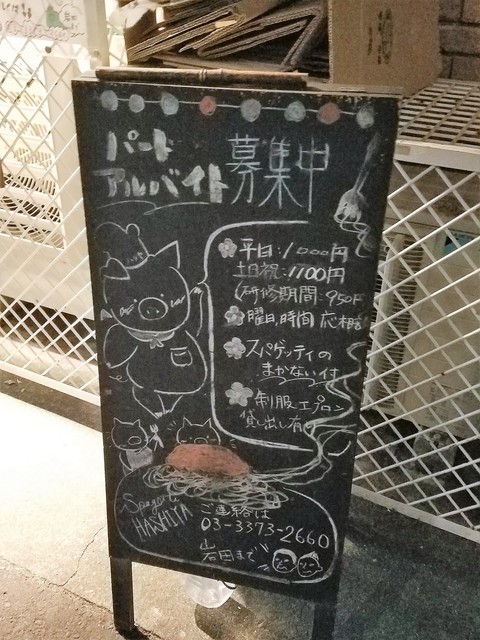 パート
アルバイト 募集中
平日:1000円
土日祝:1100円
(研修期間:950円
曜日、時間 応相談
スパゲッティの
まかない付
制服エプロン
貸し出し有
Spaghetti
HASHIYA
ご連絡は
03-3373-2660
岩田まで